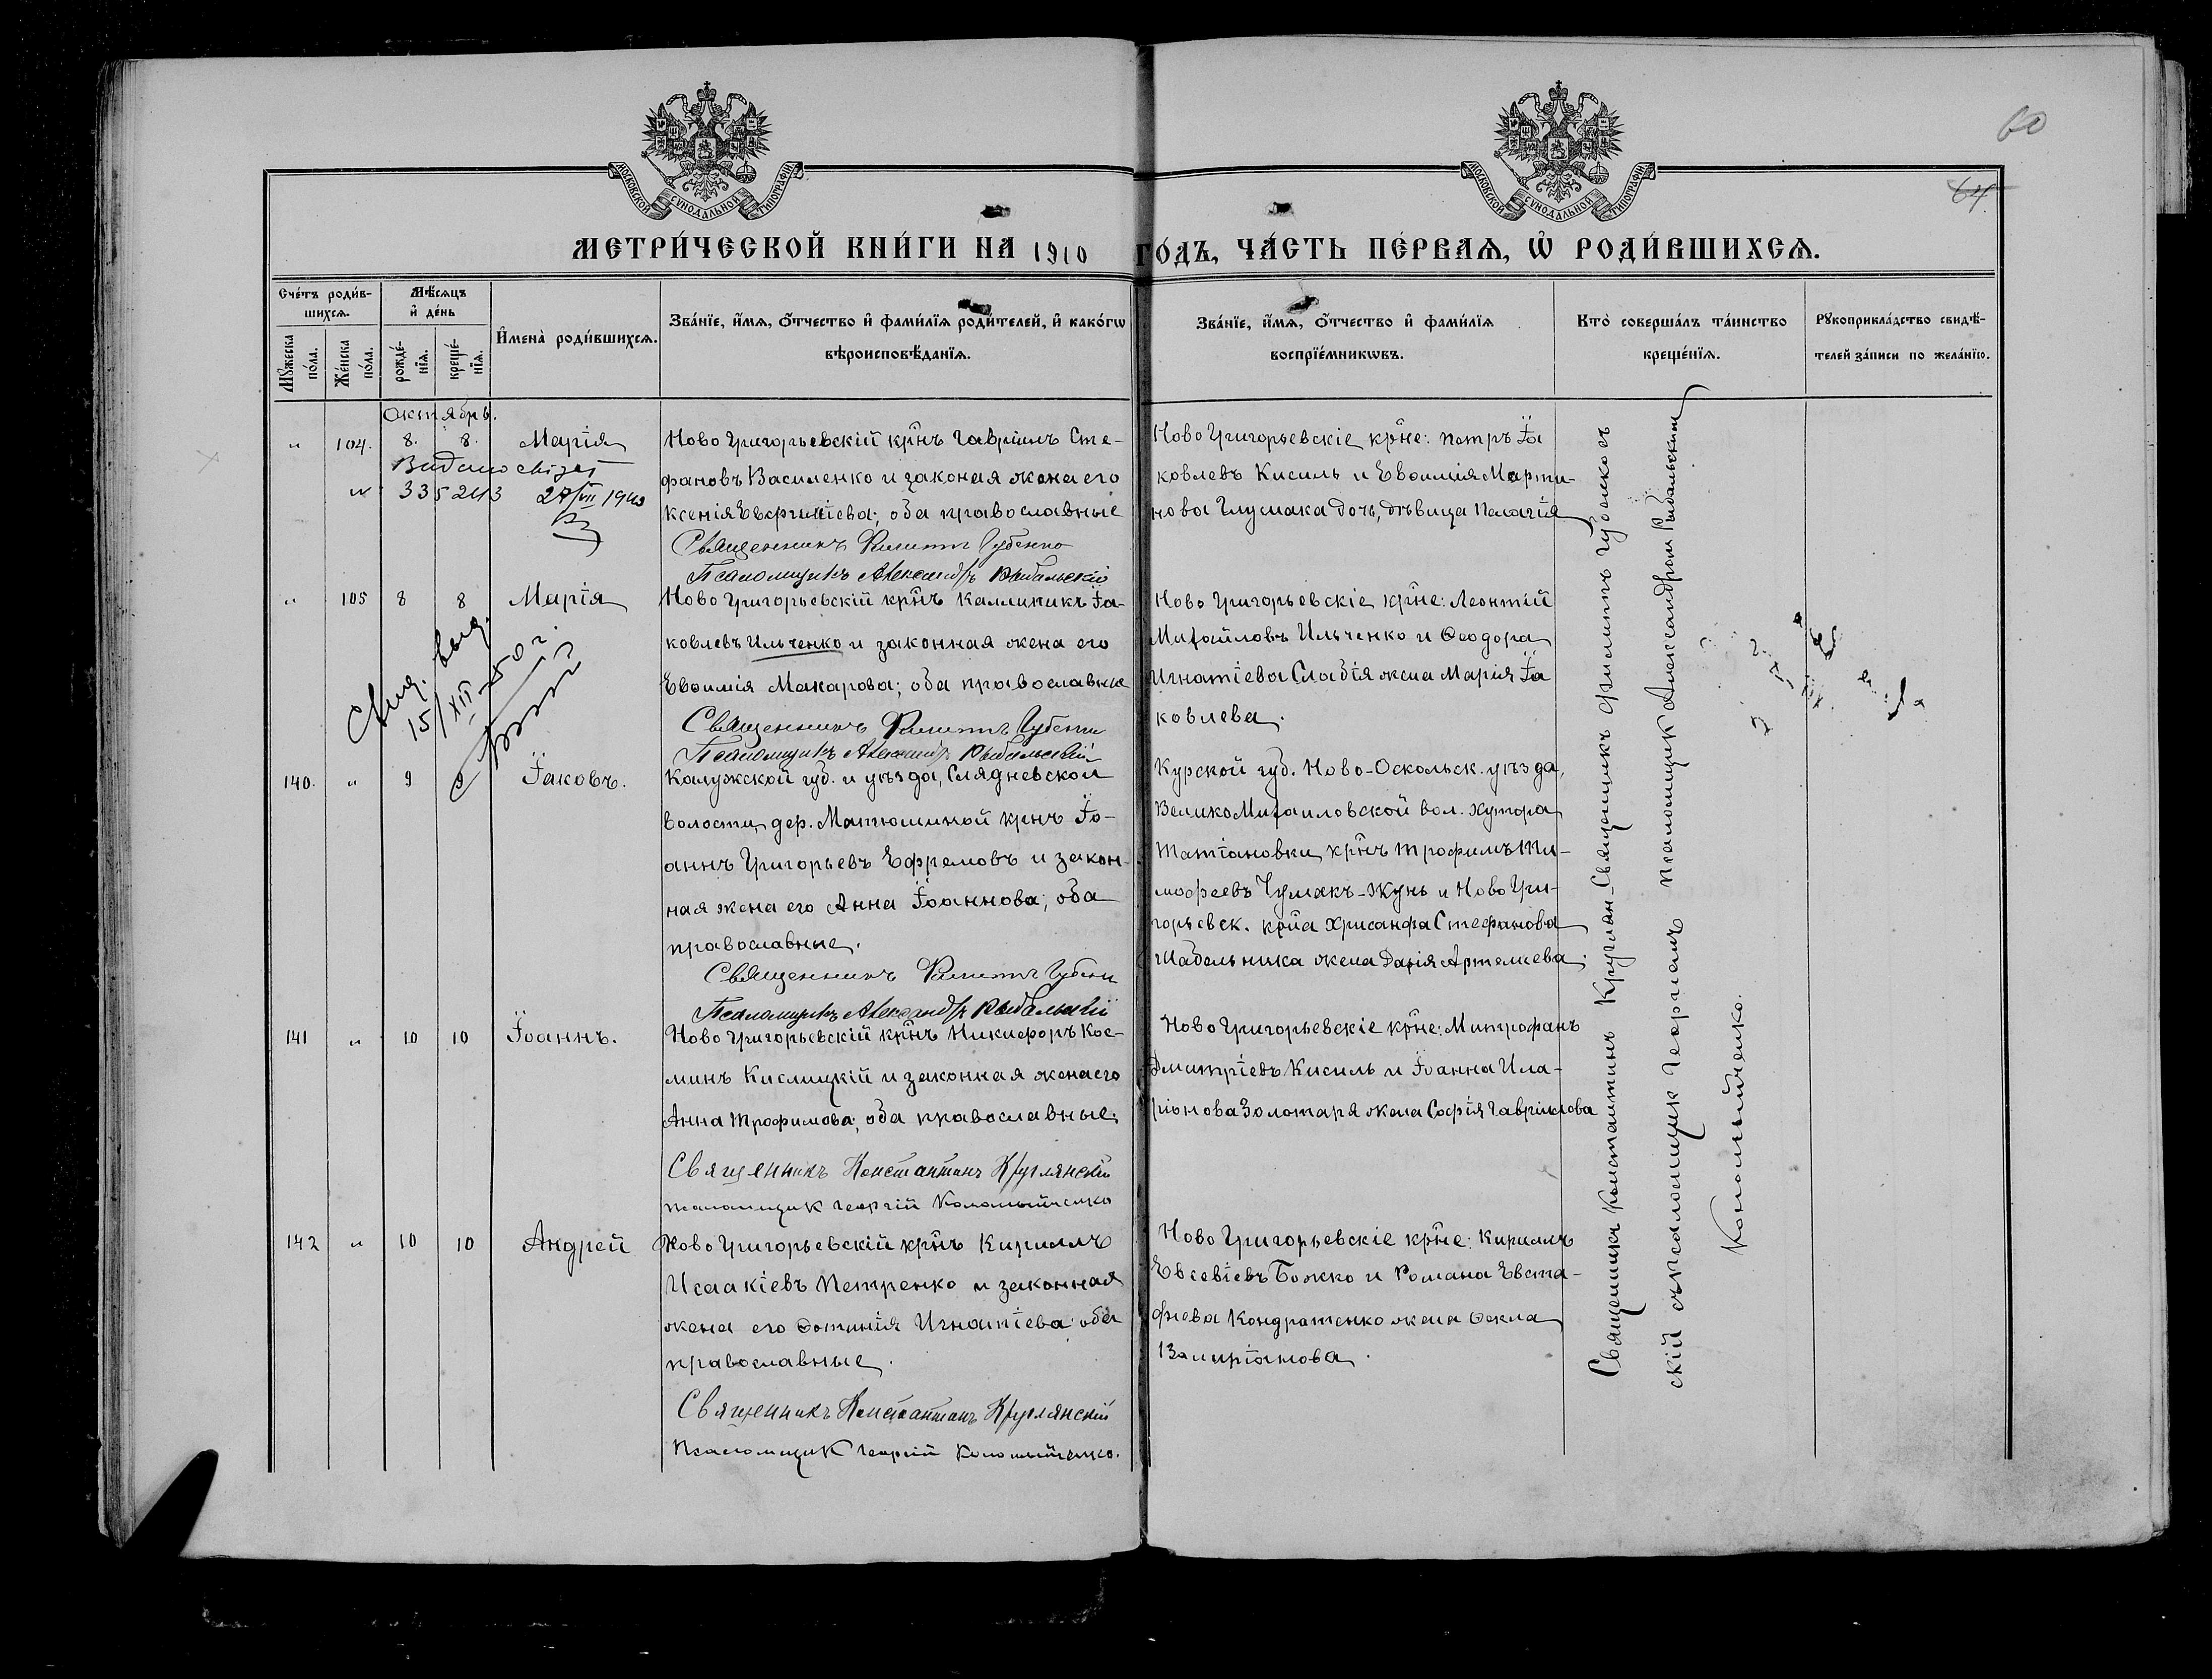 60
64
МОСКОВСКОЙ СУНОДАЛЬНОЙ ТИПОГРАФІИ
МОСКОВСКОЙ СУНОДАЛЬНОЙ ТИПОГРАФІИ
МЕТРИ́ЧЕСКОЙ КНИ́ГИ НА 1910 ГО́ДЪ, ЧА́СТЬ ПЕ́РВАѦ, Ѡ҆ РОДИ́ВШИХСѦ.
Сче́тъ роди́в-
шихсѧ.
Мꙋ́жеска по́ла.
Же́нска по́ла.
Мѣ́сѧцъ
и҆ де́нь
рожде́-
нїѧ.
креще́-
нїѧ.
И҆мена̀ роди́вшихсѧ.
Зва́нїе, и҆́мѧ, ѻ҆́тчество и҆ фами́лїѧ роди́телей, и҆ како́гѡ
вѣроисповѣ́данїѧ.
Зва́нїе, и҆́мѧ, ѻ҆́тчество и҆ фами́лїѧ
воспрїе́мникѡвъ.
Кто̀ соверша́лъ та́инство
креще́нїѧ.
Рꙋкоприкла́дство свидѣ́-
телей за́писи по жела́нїю.
Октябрь.
" 104. 8. 8. Марія
Ново Григорьевскій кр̃нъ Гавріилъ Сте-
фановъ Василенко и законая жена его
Ксенія; оба православные
Священникъ Филиппъ Губенко
Псаломщикъ Александръ Рыбальскій
Ново Григорьевскіе кр̃не: Петръ Іа
ковлевъ Кисиль и Евѳимія Марти-
нова Глушака дочь, дѣвица Пелагія
Видано
№ 335243 27/VII 1940
" 105 8 8 Марія
Ново Григорьевскій кр̃нъ Каллиникъ Іа-
ковлевъ Ильченко и законная жена его
Евѳимія Макарова; оба православные
Священникъ Филиппъ Губенко
Псаломщикъ Александръ Рыбальскій
Ново Григорьевскіе кр̃не: Леонтій
Михайловъ Ильченко и Ѳеодора
Игнатіева Слабія жена Марія Іа
ковлева.
Свид. выд.
15/XII-50 г.
140. " 9 9 Іаковъ.
Калужской губ. и уѣзда, Слядневской
волости, дер. Матюшиной крнъ Іо-
аннъ Григорьевъ Ефремовъ и закон-
ная жена его Анна Іоаннова; оба
православные.
Священникъ Филиппъ Губенко
Псаломщикъ Александръ Рыбальскій
Курской губ. Ново-Оскольск. уѣзда,
ВеликоМихайловской вол. хутора
Татіановки, кр̃нъ Трофимъ Ти-
моѳеевъ Чумакъ-Жунь и Ново Гри-
горьевск. кр̃на Хрисанфа Стефанова
Шабельника жена Дарія Артемиева.
141 " 10 10 Іоаннъ.
Ново Григорьевскій кр̃нъ Никифоръ Кос-
минъ Кислицкій и законная жена его
Анна Трофимова; оба православные.
Священникъ Константинъ Круглянскій
Псаломщикъ Георгій Коломыйченко
Ново Григорьевскіе кр̃не: Митрофанъ
Дмитріевъ Кисиль и Іоанна Ила-
ріонова Золотаря жена Софія Гавріилова
142 " 10 10 Андрей
Ново Григорьевскій кр̃нъ Кириллъ
Исаакіевъ Петренко и законная
жена его Фотинія Игнатіева; оба
православные.
Священникъ Константинъ Круглянскій
Псаломщикъ Георгій Коломыйченко.
Ново Григорьевскіе кр̃не: Кириллъ
Евсевіевъ Божко и Романа Евста-
фиева Кондратенко жена Ѳекла
Священники Константинъ Круглян Священникъ Филиппъ Губенко съ
скій съ псаломщик Георгіемъ псаломщик Александром Рыбальским
Коломыйченко.